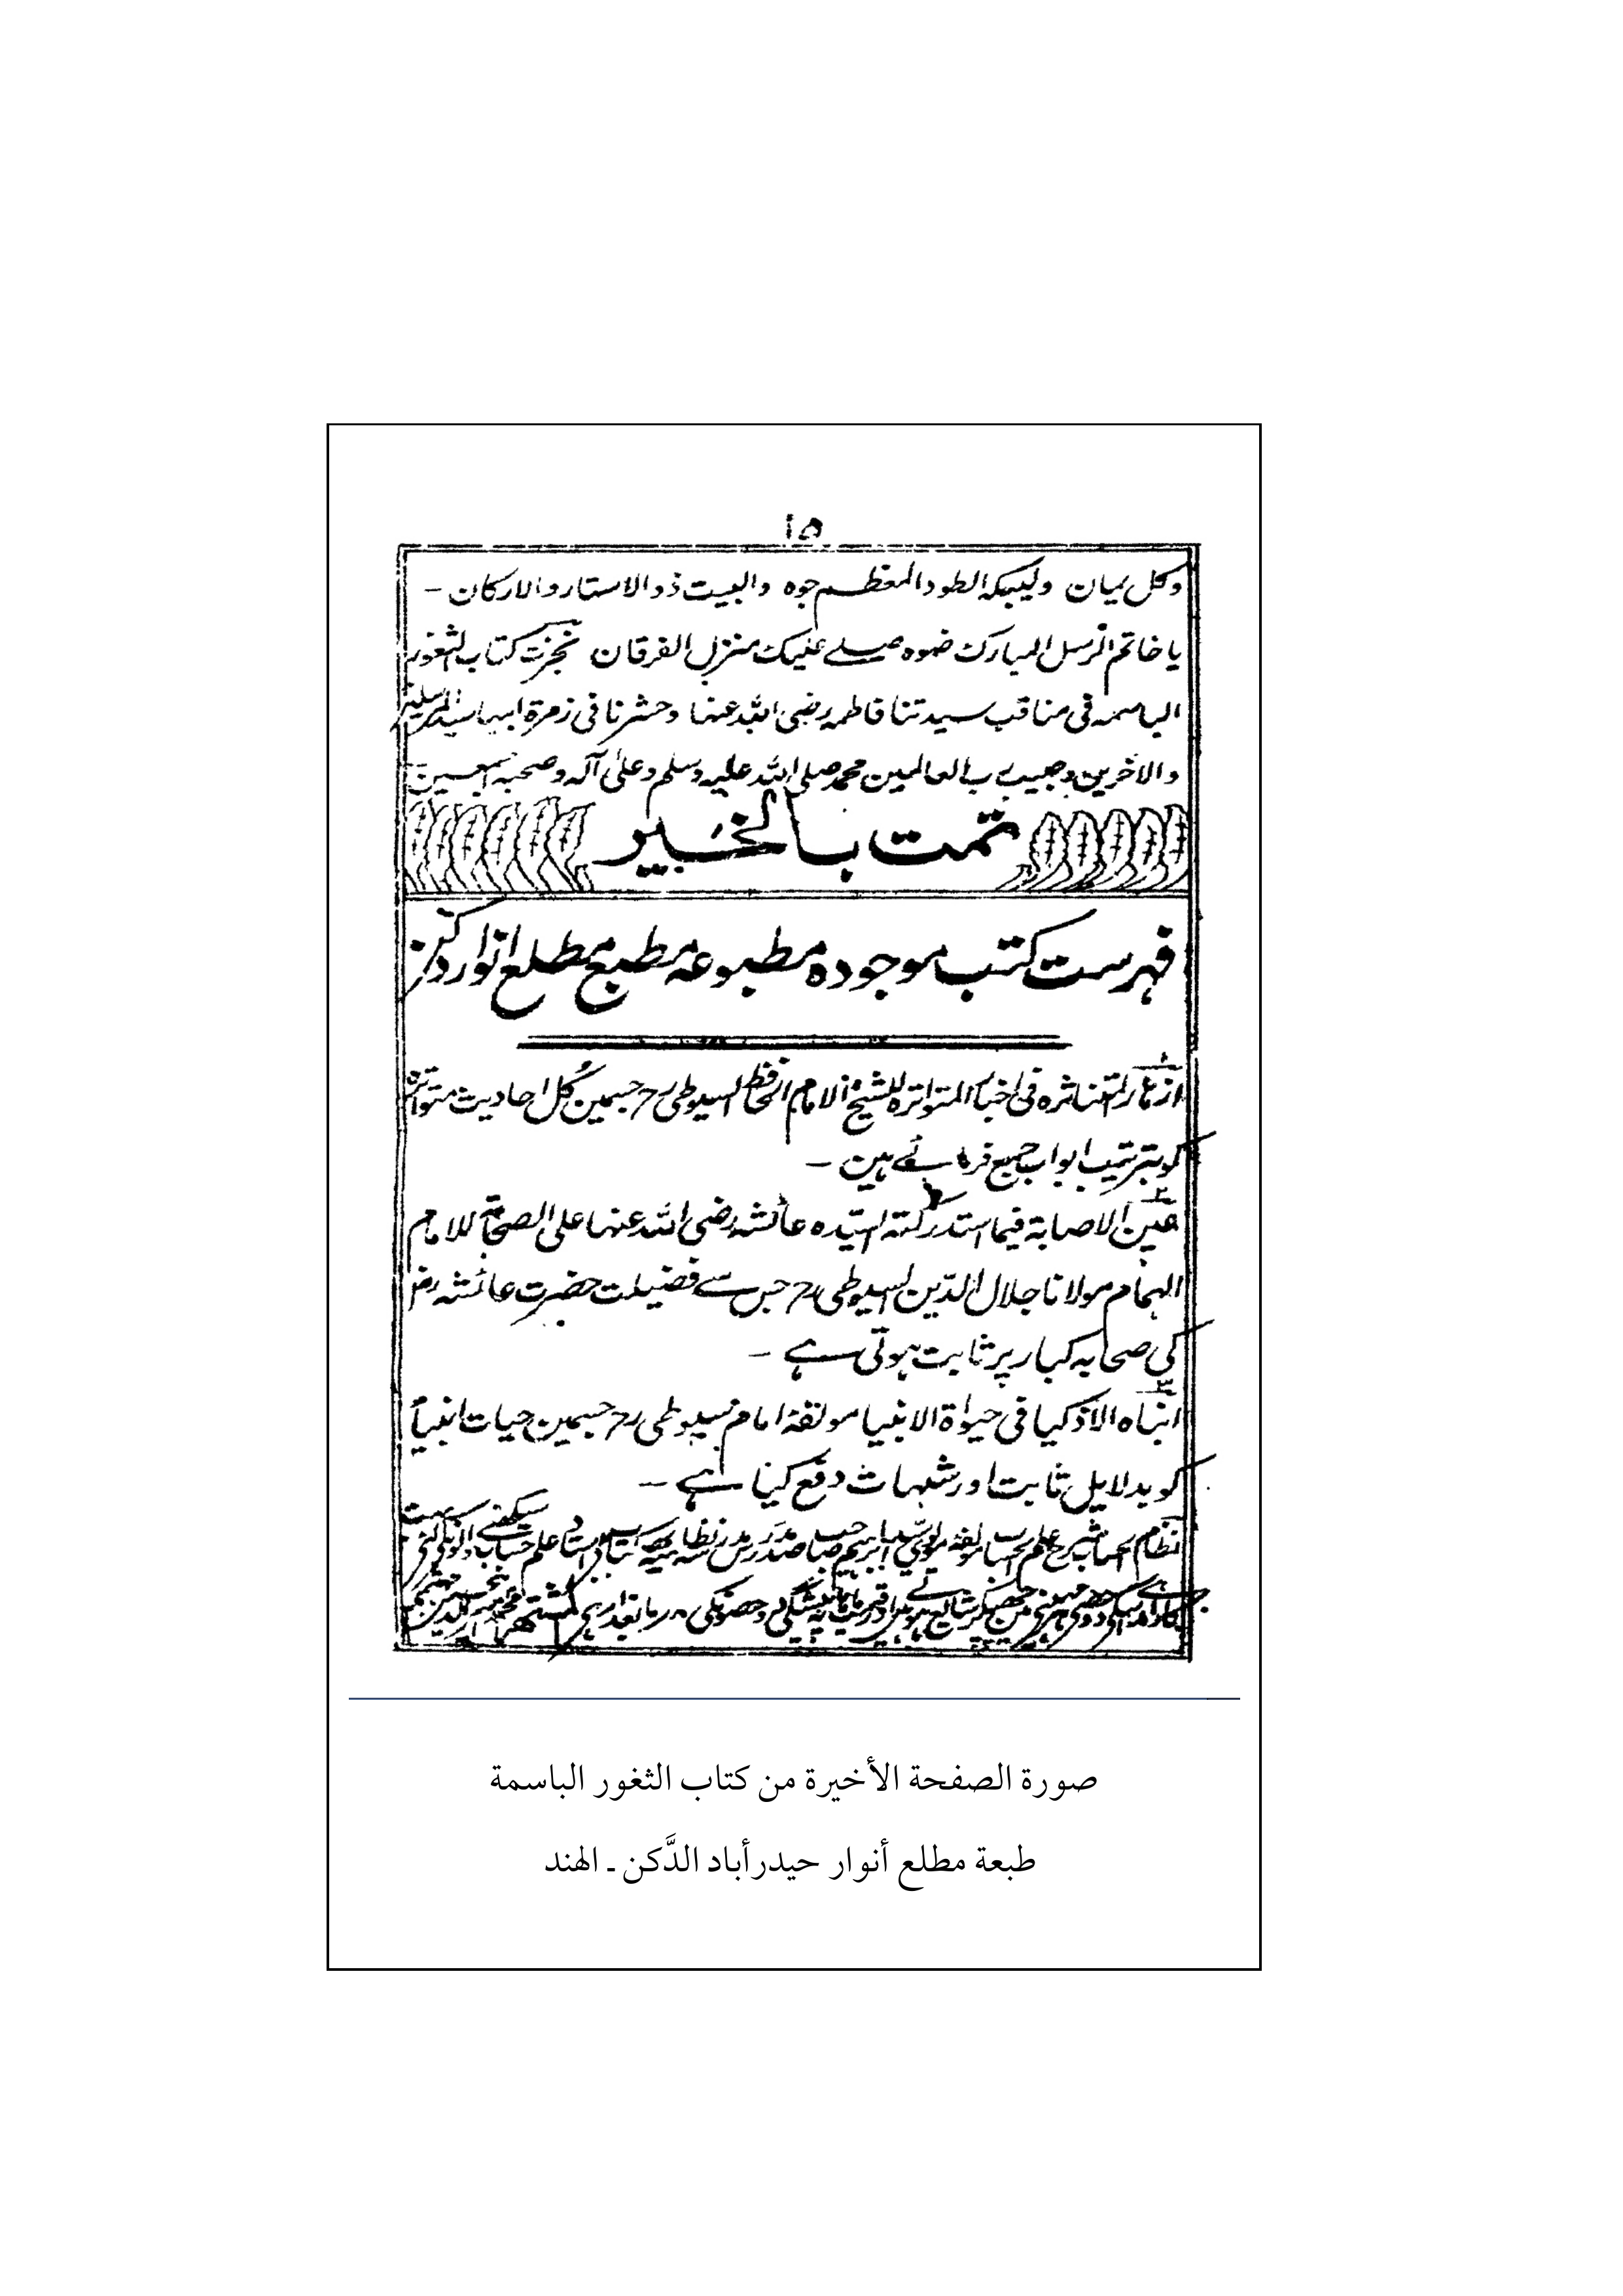 ١٥
وكل يمان وليبكه الطود المعظم جوه والبيت ذو الاستار والاركان -
يا خاتم الرسل المبارك ضوه صلے عليك منزل الفرقان نجزت كتاب الثغور
الباسمه فى مناقب سيدتنا فاطمه رضى الله عنها وحشرنا فى زمرة ابيها سيد المرسلين
والاخرين وحبيب رب العالمين محمد صلى الله عليه وسلم وعلى آله وصحبه اجمعين
تمت بالخير
فهرست كتب موجوده مطبوعه مطبع مطلع انوار دكن
ازهار المتناثره فى اخبار المتواتره للشيخ الامام الحافظ السيوطى رح جسمين كل احاديث متواتره
كو بترتيب ابواب جمع فرمائے ہين -
عين الاصابة فيما استدركته السيده عائشه رضى الله عنها على الصحابة للامام
الہمام مولانا جلال الدين السيوطى رح جس سے فضيلت حضرت عائشه رض
كى صحابه كبار پر ثابت ہوتى ہے -
٣
انباه الاذكيا فى حيوٰة الانبيا مولفهٔ امام سيوطى رح جسمين حيات انبيأ
كو بدلايل ثابت اور شبهات دفع كيا ہے -
نظام الحساب شرح علم حساب مولفه مولوي سيد ابراہيم صاحب صدر مدرس مدرسه نظاميه علم حساب
صورة الصفحة الأخيرة من كتاب الثغور الباسمة
طبعة مطلع أنوار حيدرأباد الدَّكن ـ الهند